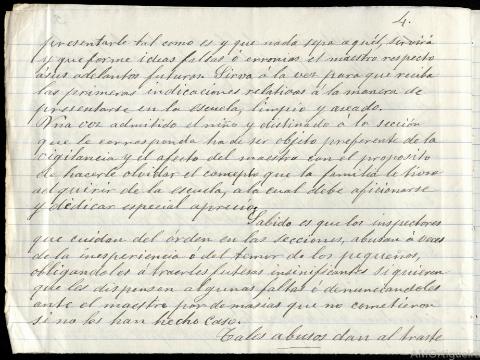 4.
presentarle tal como es y que nada sepa aquél, serviría
y que forme ideas falsas ó erronias el maestro respecto
á sus adelantos futuros. Sirva á la vez para que reciba
las primeras indicaciones relativas á la manera de
presentarse en la escuela, limpio y aseado.
Una vez admitido el niño y destinado á la sección
que le corresponda ha de ser objeto preferente de la
vigilancia y el afecto del maestro con el proposito
de hacerle olvidar el concepto que la familia le hizo
adquirir de la escuela, a la cual debe aficionarse
y dedicar especial aprecio.
Sabido es que los inspectores
que cuidan del órden en las secciones, abusan á veces
de la inesperiencia ó del temor de los pequeños,
obligandoles á traerles futesas insinificantes si quieren
que les dispensen algunas faltas ó denunciandoles
ante el maestro por demasias que no cometieron
si no les han hecho caso.
Tales abusos dan al traste